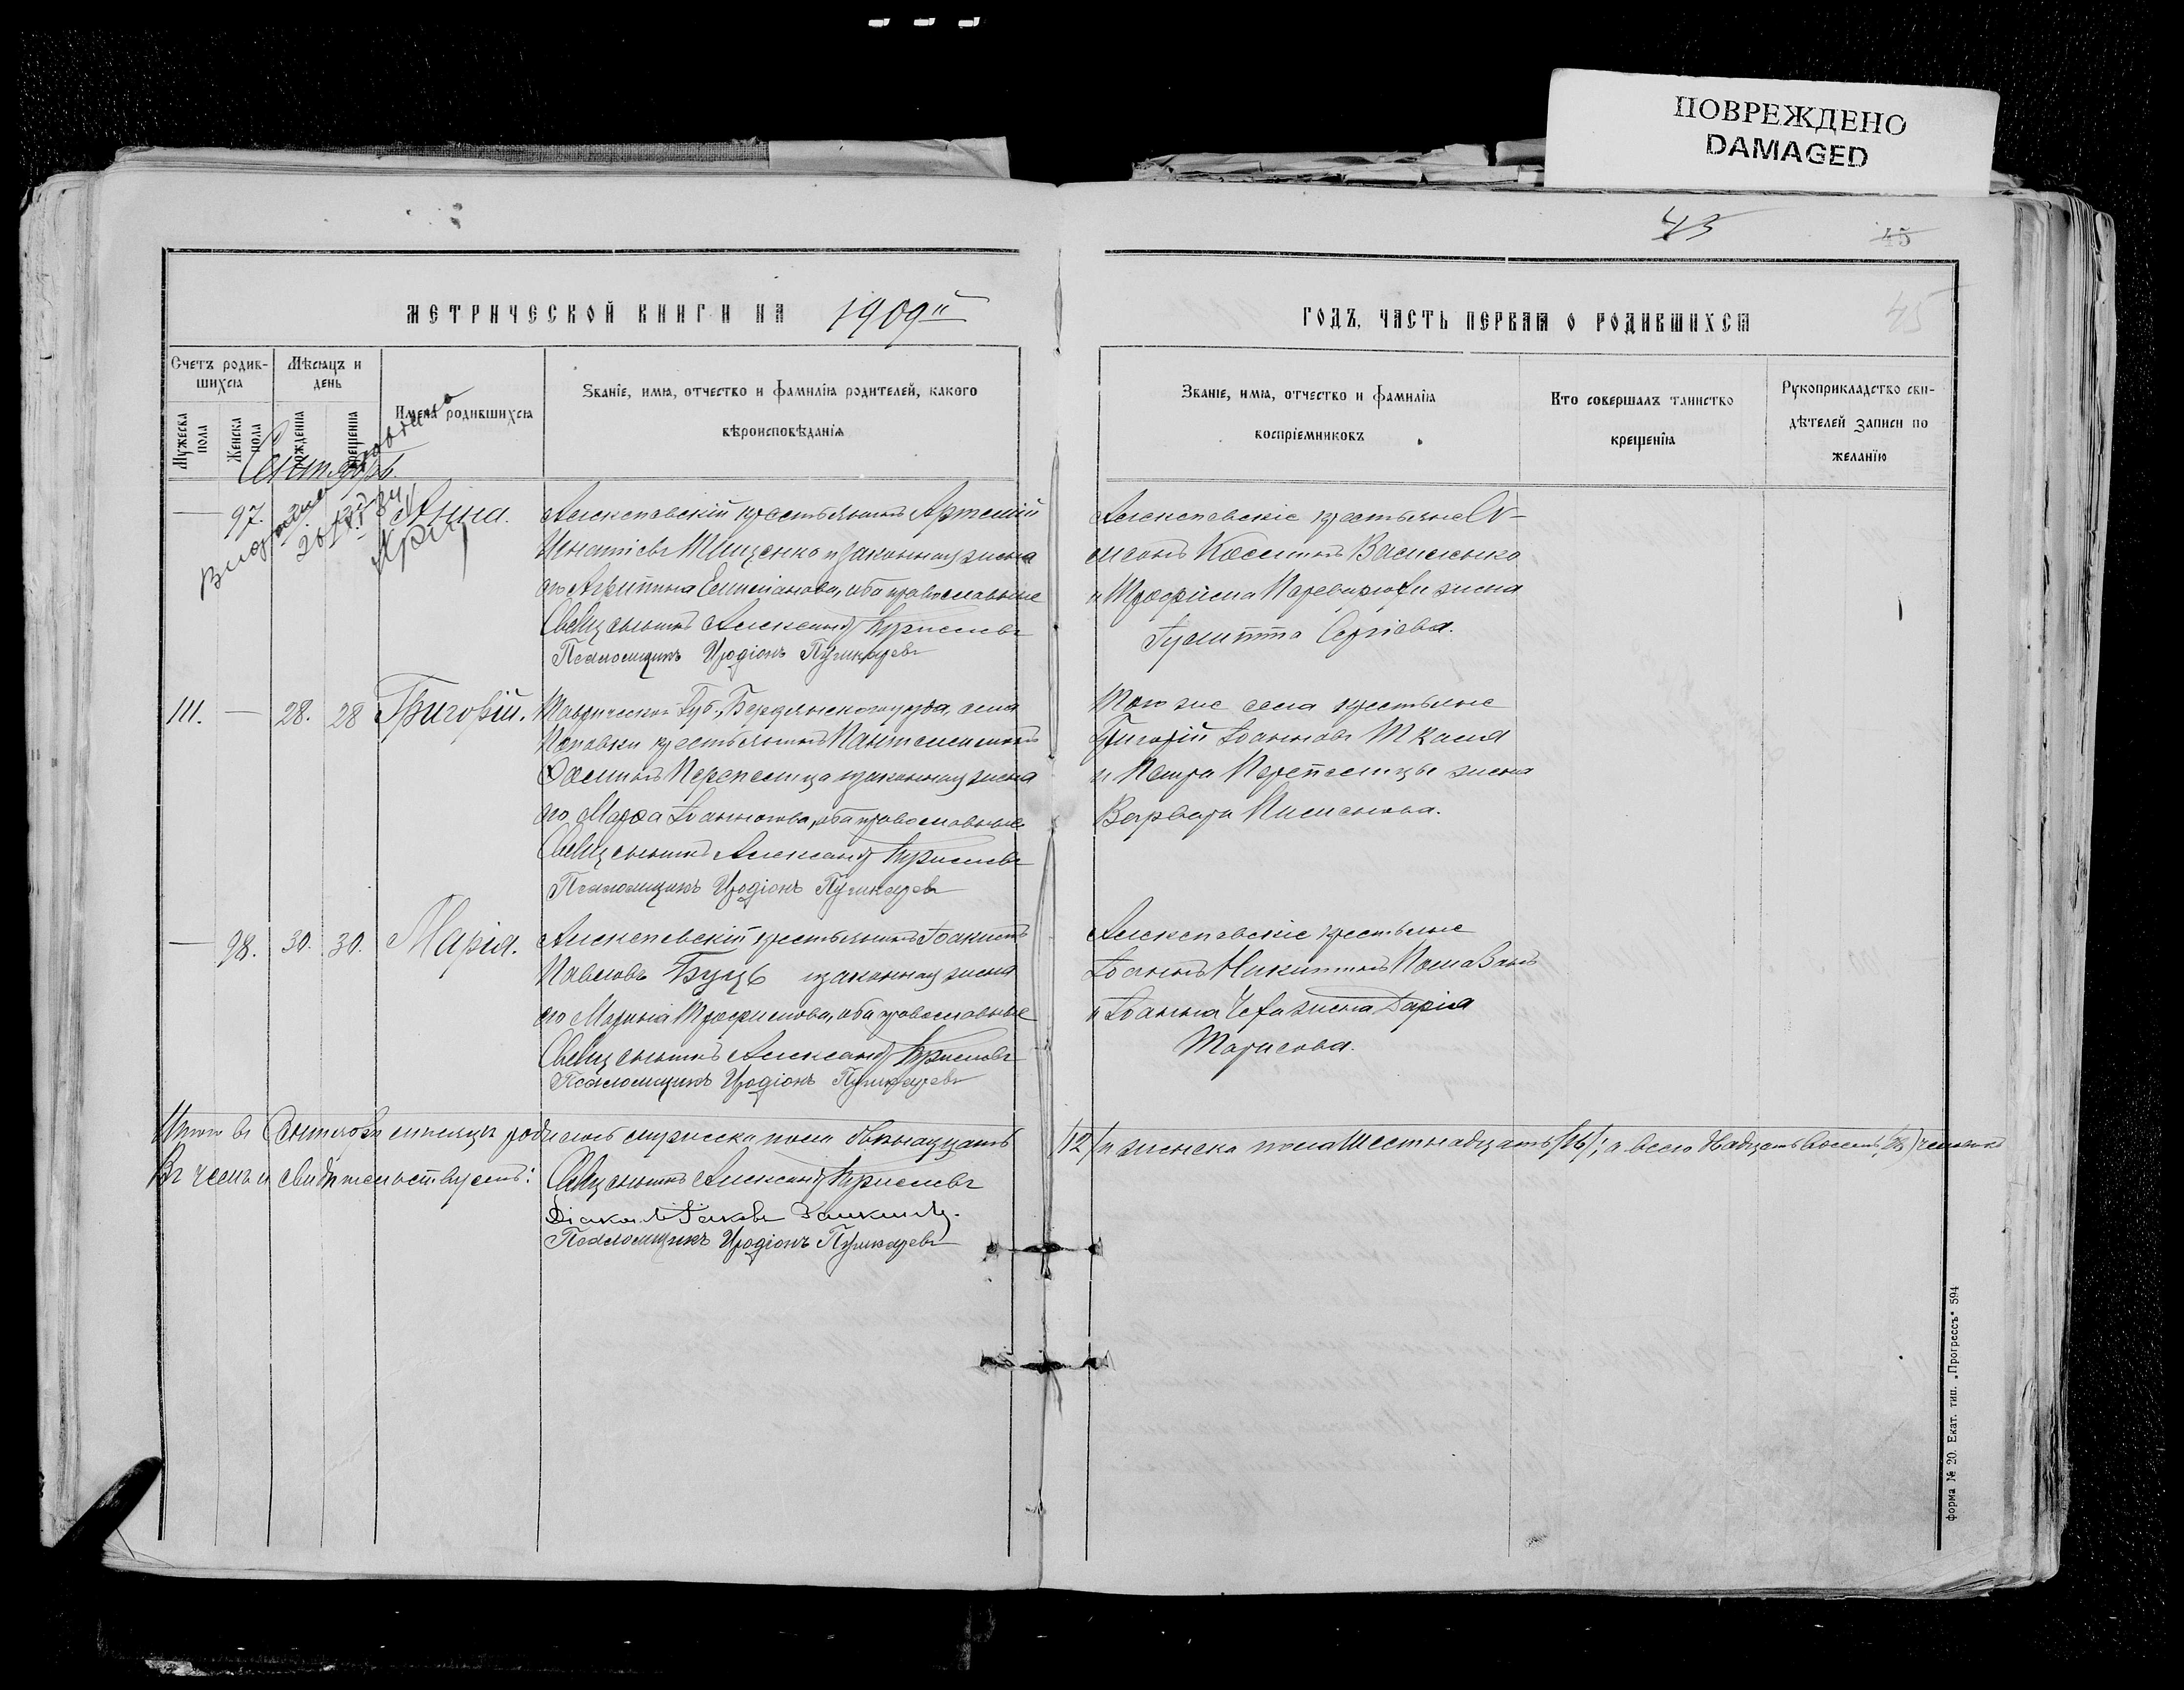 ПОВРЕЖДЕНО
DAMAGED
43
45
45
МЕТРИЧЕСКОЙ КНИГИ НА 1909й
Счетъ родившихся
Мужеска пола
Женска пола
Мѣсяцъ и день
рожденія
крещенія
Имена родившихся
Званіе, имя, отчество и фамилія родителей, какого
вѣроисповѣданія
Сентябрь.
97.
Анна.
Алексѣевскій крестьянинъ Артемій
Игнатіевъ Тищенко и законная жена
его Агрипина, оба православные
Священникъ Александръ
Псаломщикъ Иродіонъ Пушкаревъ
111. — 28. 28 Григорій.
Таврической Губ., Бердянского уѣзда, села
Поповки крестьянинъ Пантелеимонъ
Перепелица и законная жена
его Марѳа Іоаннова, оба православные
Священникъ Александръ
Псаломщикъ Иродіонъ Пушкаревъ
— 98. 30. 30. Марія.
Алексѣевскій крестьянинъ Іоакимъ
Павловъ Буцъ и законная жена
его Марина Трофимова, оба православные
Священникъ Александръ
Псаломщикъ Иродіонъ Пушкаревъ
Итого въ Сентябрѣ мѣсяцѣ родилось мужеска пола двѣнадцать
Въ чемъ и свидѣтельствуетъ: Священникъ Александръ
Діаконъ Іаковъ
Псаломщикъ Иродіонъ Пушкаревъ
ГОДЪ, ЧАСТЬ ПЕРВАЯ О РОДИВШИХСЯ
Званіе, имя, отчество и фамилія
воспріемниковъ
Кто совершалъ таинство
крещенія
Рукоприкладство свидѣтелей записи по
желанію
Алексѣевскіе крестьяне Си-
меонъ Косминъ Василенко
и Трофима жена
Сергіева.
Того же села крестьяне
Григорій Іоанновъ Ткаля
и Петра Перепелицы жена
Варвара
Алексѣевскіе крестьяне
Іоаннъ Никитинъ
и Іоанна жена Дарія
Тарасова.
/12/ и женска пола Шестнадцать /16/; а всего двадцать восемь (28) человекъ
форма № 20. Екат. тип. „Прогрессъ" 594